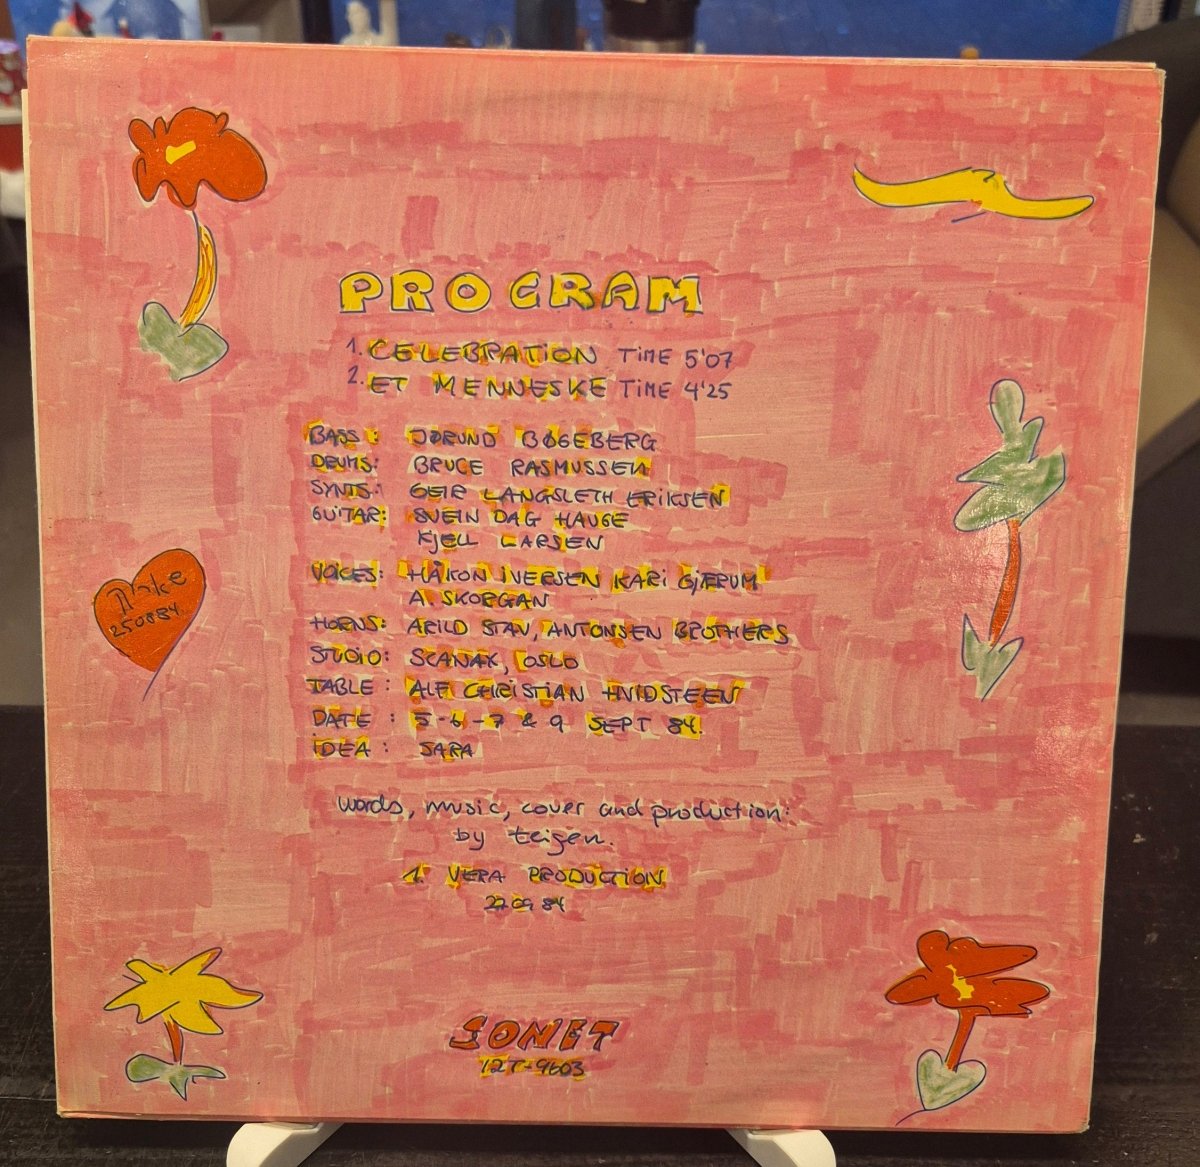 PROGRAM
1. CELEBRATION TiME 5'07
2. ET MENNESKE TiME 4'25
BASS: JØRUND BØGEBERG
DRUMS: BRUCE RASMUSSEN
SYNTS: GEIR LANGSLETH ERiKSEN
GUiTAR: SVEIN DAG HAUGE
KJELL LARSEN
VOICES: HÅKON iVERSEN KARi GJÆRUM
A. SKORGAN
HORNS: ARILD STAV, ANTONSEN BROTHERS
25 08 84
STUDIO: SCANAX, OSLO
TABLE: ALF CHRiSTiAN HVIDSTEEN
DATE: 5-6-7 & 9 SEPT 84.
iDEA: SARA
words, music, cover and production:
by teigen.
1. VERA PRODUCTION
22 09 84
SONET
12T-9603